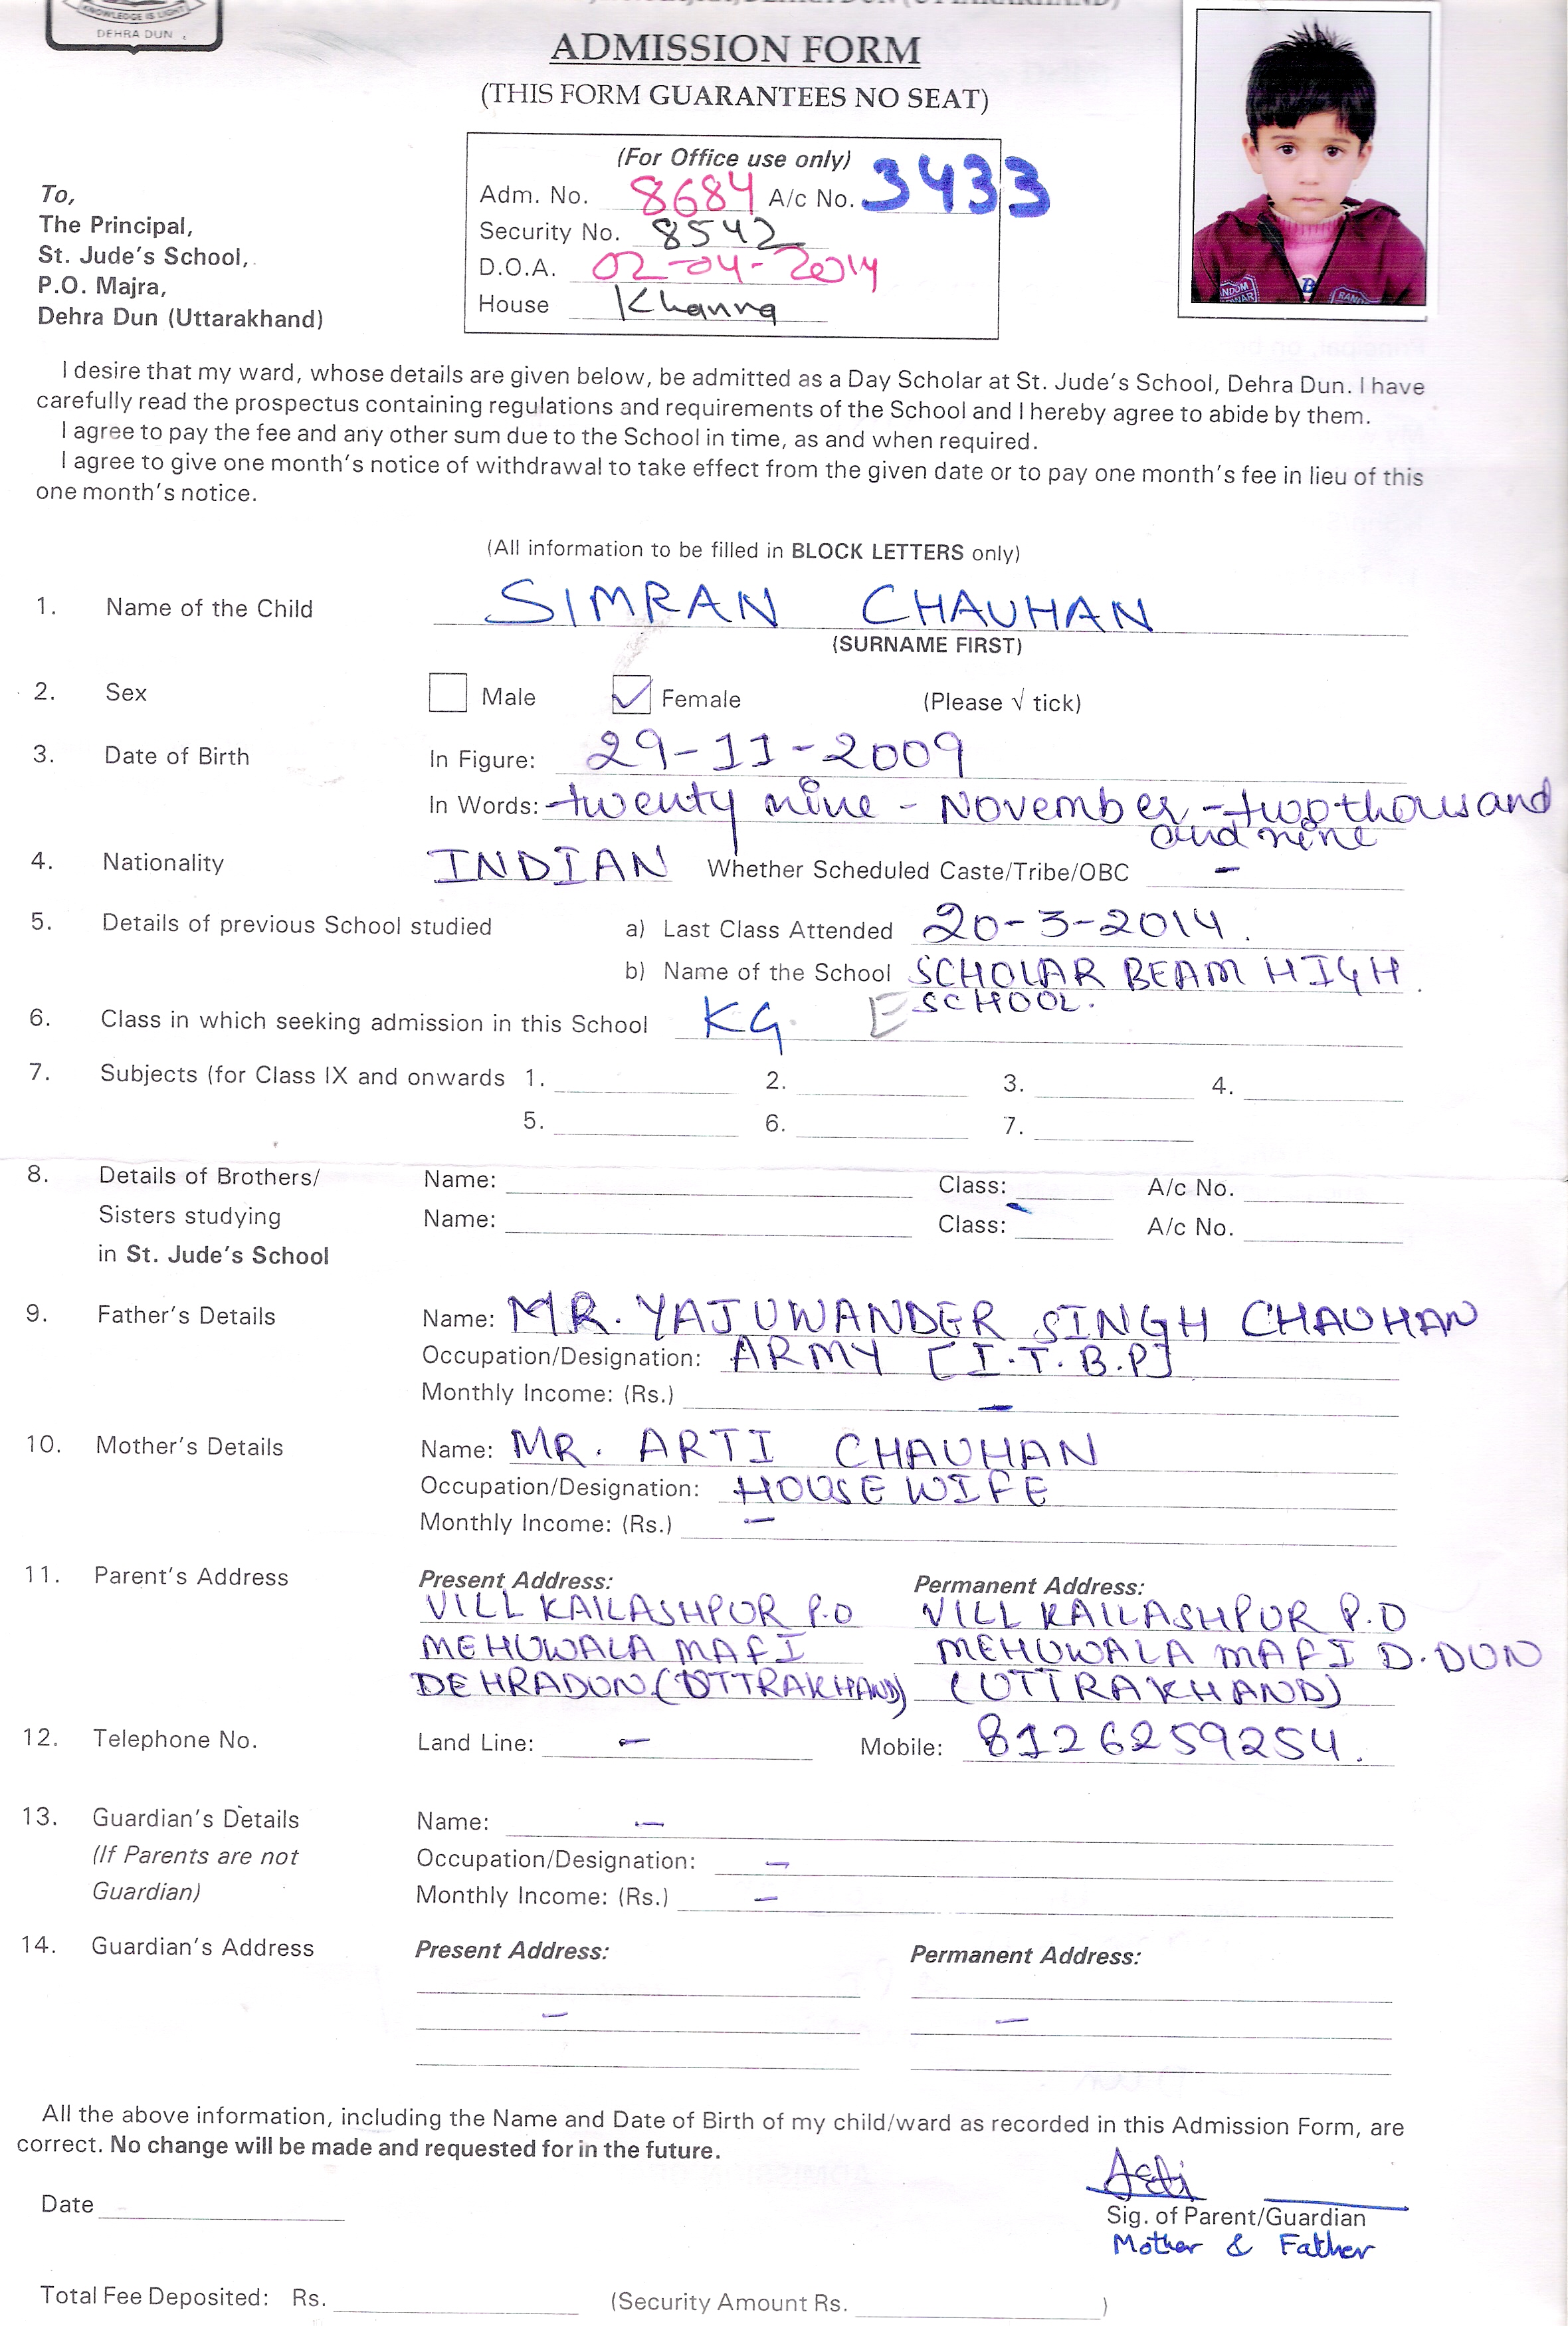 KNOWLEDGE IS LIGHT
DEHRA DUN
ADMISSION FORM
(THIS FORM GUARANTEES NO SEAT)
(For Office use only)
Adm. No. 8684 A/c No. 3433
Security No. 8542
D.O.A. 02-04-2014
House Khanna
To,
The Principal,
St. Jude's School,
P.O. Majra,
Dehra Dun (Uttarakhand)
I desire that my ward, whose details are given below, be admitted as a Day Scholar at St. Jude's School, Dehra Dun. I have
carefully read the prospectus containing regulations and requirements of the School and I hereby agree to abide by them.
I agree to pay the fee and any other sum due to the School in time, as and when required.
I agree to give one month's notice of withdrawal to take effect from the given date or to pay one month's fee in lieu of this
one month's notice.
(All information to be filled in BLOCK LETTERS only)
1. Name of the Child SIMRAN CHAUHAN
(SURNAME FIRST)
2. Sex Male ✓ Female (Please √ tick)
3. Date of Birth In Figure: 29-11-2009
In Words: twenty nine - November - two thousand
and nine
4. Nationality INDIAN Whether Scheduled Caste/Tribe/OBC -
5. Details of previous School studied a) Last Class Attended 20-3-2014.
b) Name of the School SCHOLAR BEAM HIGH
SCHOOL.
6. Class in which seeking admission in this School KG. E
7. Subjects (for Class IX and onwards 1. 2. 3. 4.
5. 6. 7.
8. Details of Brothers/ Name: Class: A/c No.
Sisters studying Name: Class: A/c No.
in St. Jude's School
9. Father's Details Name: MR. YAJUWANDER SINGH CHAUHAN
Occupation/Designation: ARMY [I.T.B.P]
Monthly Income: (Rs.) -
10. Mother's Details Name: MR. ARTI CHAUHAN
Occupation/Designation: HOUSE WIFE
Monthly Income: (Rs.) -
11. Parent's Address Present Address: Permanent Address:
VILL KAILASHPUR P.O VILL KAILASHPUR P.O
MEHUWALA MAFI MEHUWALA MAFI D.DUN
DEHRADUN (UTTRAKHAND) (UTTRAKHAND)
12. Telephone No. Land Line: - Mobile: 8126259254.
13. Guardian's Details Name: -
(If Parents are not Occupation/Designation: -
Guardian) Monthly Income: (Rs.) -
14. Guardian's Address Present Address: Permanent Address:
- -
All the above information, including the Name and Date of Birth of my child/ward as recorded in this Admission Form, are
correct. No change will be made and requested for in the future.
Date
Sig. of Parent/Guardian
Mother & Father
Total Fee Deposited: Rs. (Security Amount Rs. )